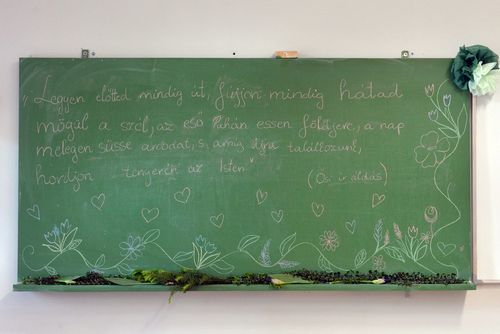 „Legyen előtted mindig út, fújjon mindig hátad
mögül a szél, az eső puhán essen földjeire, a nap
melegen süsse arcodat, s amíg újra találkozunk,
hordjon tenyerén az Isten"
(Ősi ír áldás)